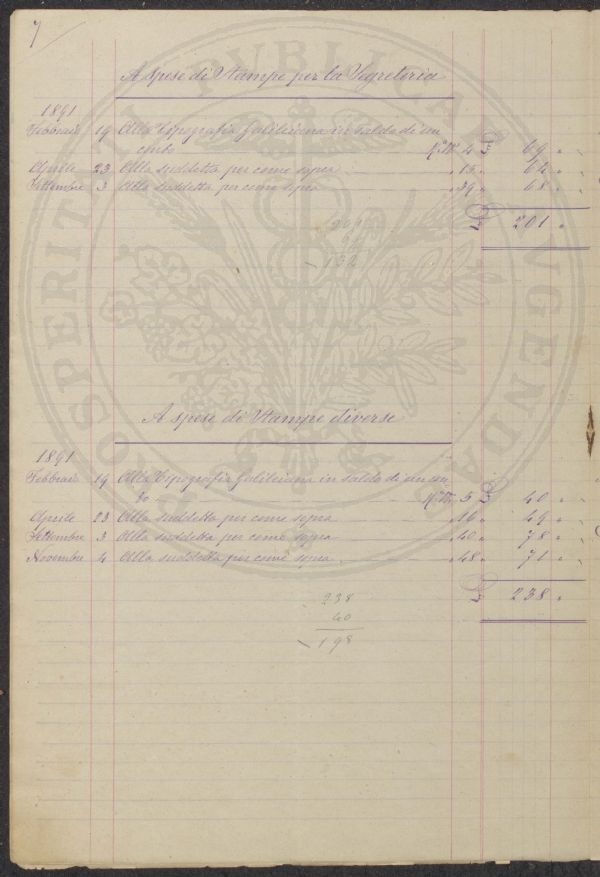 7
A spese di Stampe per la Segreteria
1891
Febbraio 19 Alla Tipografia Galileiana in saldo di un
conto N° M. 4 £ 69 " "
Aprile 23 Alla suddetta per come sopra " 15 " 64 " "
Settembre 3 Alla suddetta per come sopra " 39 " 68 " "
£ 201 "
201
132
A spese di Stampe diverse
1891
Febbraio 19 Alla Tipografia Galileiana in saldo di un con
to N° M. 5 £ 40 " "
Aprile 23 Alla suddetta per come sopra " 16 " 49 " "
Settembre 3 Alla suddetta per come sopra " 40 " 78 " "
Novembre 4 Alla suddetta per come sopra " 48 " 71 " "
£ 238 "
238
40
198
PROSPERITATI PUBLICAE AUGENDAE